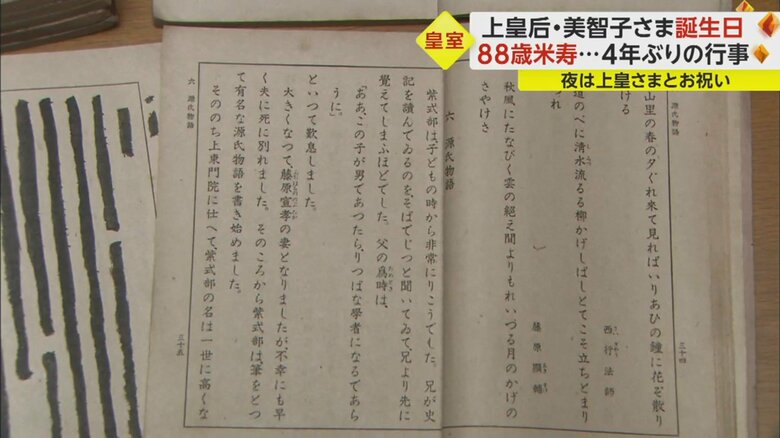 皇室
上皇后・美智子さま誕生日
88歳米寿…4年ぶりの行事
夜は上皇さまとお祝い
源氏物語
三十四
山里の春の夕ぐれ来て見ればいりあひの鐘に花ぞ散り
ける
西行法師
道のべに清水流るる柳かげしばしとてこそ立ちとまり
つれ
藤原顯輔
秋風にたなびく雲の絶え間よりもれいづる月のかげの
さやけさ
六 源氏物語
紫式部は、子どもの時から非常にりこうでした。兄が史
記を讀んでゐるのを、そばでじつと聞いてゐて、兄より先に
覺えてしまふほどでした。父の爲時は、
「ああ、この子が男であつたら、りつぱな學者になるであら
うに。」
といつて歎息しました。
大きくなつて、藤原宣孝の妻となりましたが、不幸にも早
く夫に死に別れました。そのころから紫式部は、筆をとつ
て有名な源氏物語を書き始めました。
そののち上東門院に仕へて、紫式部の名は一世に高くな
六 源氏物語
三十五